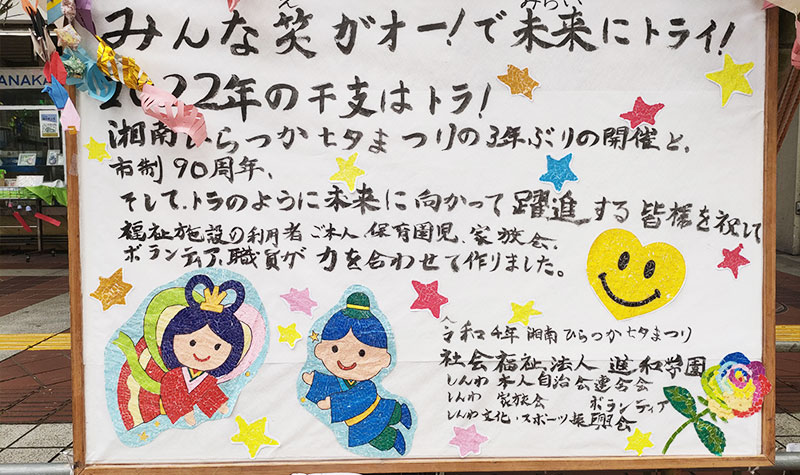 みんな笑がオー!で未来にトライ!
え
みらい
2022年の干支はトラ!
湘南ひらつか七夕まつりの3年ぶりの開催と、
市制90周年、
そして、トラのように未来に向かって躍進する皆様を祝して
福祉施設の利用者ご本人、保育園児、家族会、
ボランティア、職員が力を合わせて作りました。
令和4年 湘南ひらつか七夕まつり
社会福祉法人 進和学園
しんわ 本人自治会連合会
しんわ 家族会 ボランティア
しんわ文化・スポーツ振興会
ANAKA